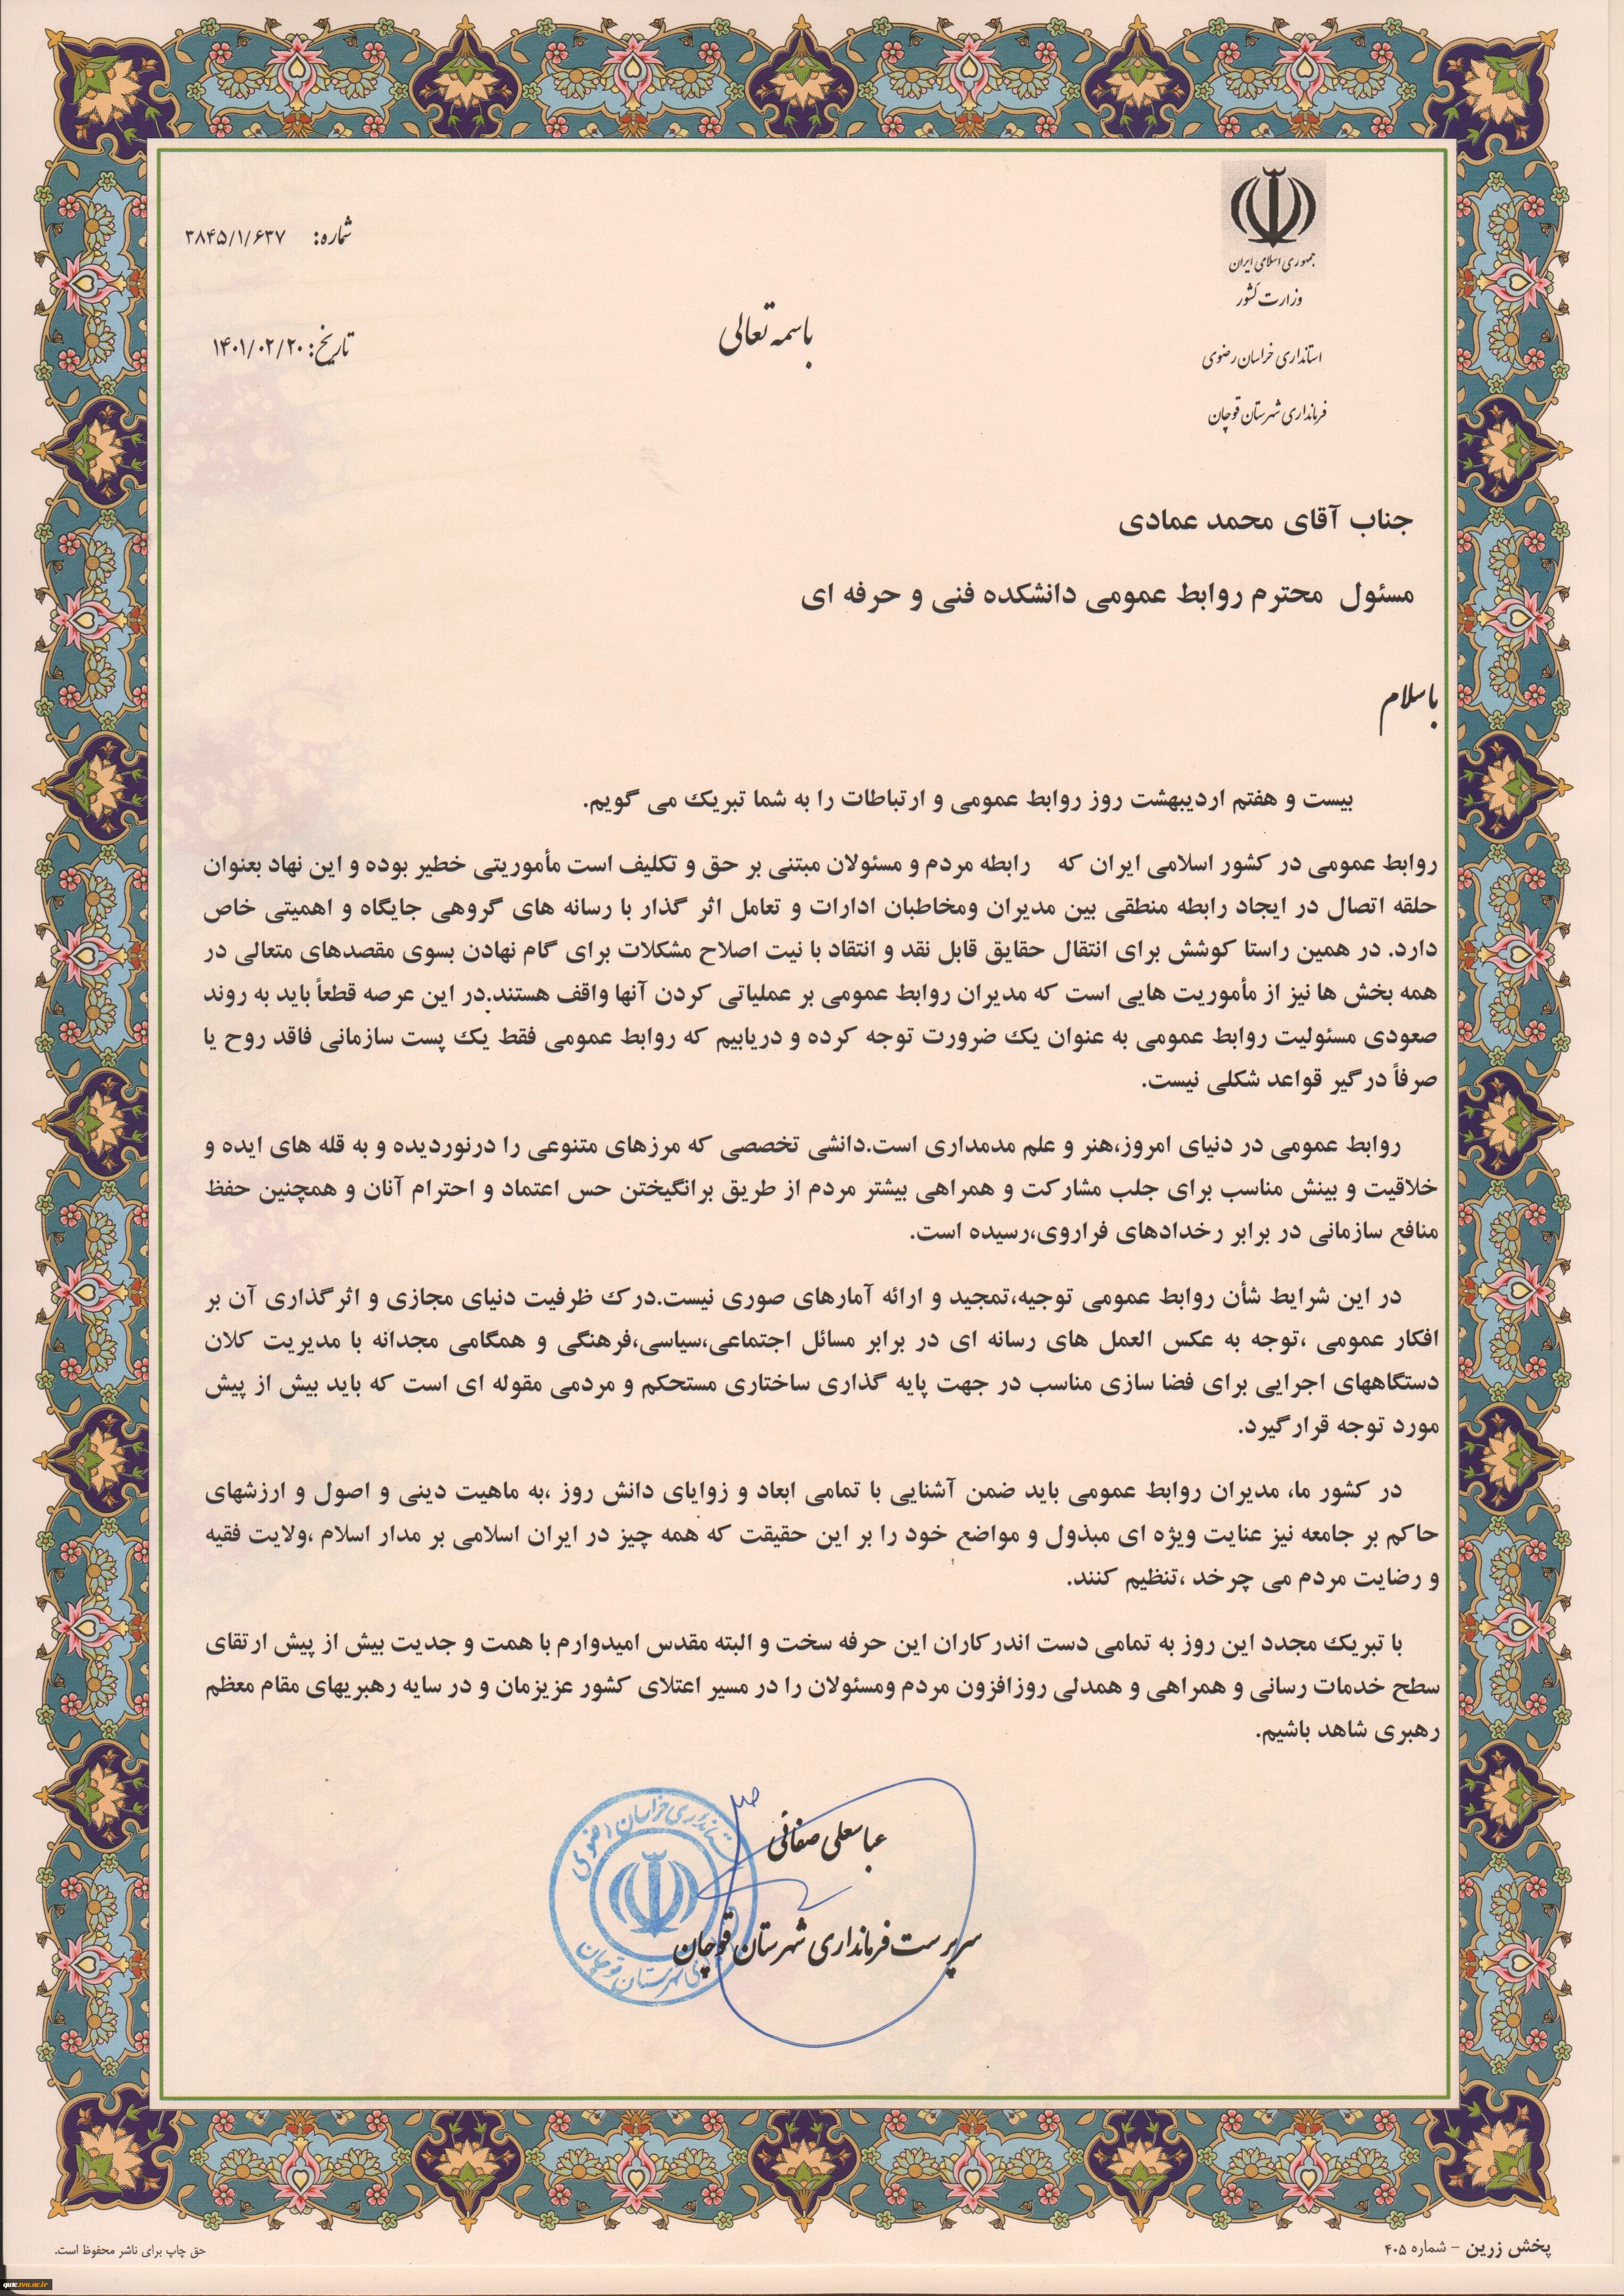 جمهوری اسلامی ایران
وزارت کشور
استانداری خراسان رضوی
فرمانداری شهرستان قوچان
شماره: ۳۸۴۵/۱/۶۳۷
تاریخ: ۱۴۰۱/۰۲/۲۰
باسمه تعالی
جناب آقای محمد عمادی
مسئول محترم روابط عمومی دانشکده فنی و حرفه ای
باسلام
بیست و هفتم اردیبهشت روز روابط عمومی و ارتباطات را به شما تبریک می گویم.
روابط عمومی در کشور اسلامی ایران که رابطه مردم و مسئولان مبتنی بر حق و تکلیف است مأموریتی خطیر بوده و این نهاد بعنوان
حلقه اتصال در ایجاد رابطه منطقی بین مدیران ومخاطبان ادارات و تعامل اثر گذار با رسانه های گروهی جایگاه و اهمیتی خاص
دارد. در همین راستا کوشش برای انتقال حقایق قابل نقد و انتقاد با نیت اصلاح مشکلات برای گام نهادن بسوی مقصدهای متعالی در
همه بخش ها نیز از مأموریت هایی است که مدیران روابط عمومی بر عملیاتی کردن آنها واقف هستند.در این عرصه قطعاً باید به روند
صعودی مسئولیت روابط عمومی به عنوان یک ضرورت توجه کرده و دریابیم که روابط عمومی فقط یک پست سازمانی فاقد روح یا
صرفاً درگیر قواعد شکلی نیست.
روابط عمومی در دنیای امروز،هنر و علم مدمداری است.دانشی تخصصی که مرزهای متنوعی را درنوردیده و به قله های ایده و
خلاقیت و بینش مناسب برای جلب مشارکت و همراهی بیشتر مردم از طریق برانگیختن حس اعتماد و احترام آنان و همچنین حفظ
منافع سازمانی در برابر رخدادهای فراروی،رسیده است.
در این شرایط شأن روابط عمومی توجیه،تمجید و ارائه آمارهای صوری نیست.درک ظرفیت دنیای مجازی و اثرگذاری آن بر
افکار عمومی ،توجه به عکس العمل های رسانه ای در برابر مسائل اجتماعی،سیاسی،فرهنگی و همگامی مجدانه با مدیریت کلان
دستگاههای اجرایی برای فضا سازی مناسب در جهت پایه گذاری ساختاری مستحکم و مردمی مقوله ای است که باید بیش از پیش
مورد توجه قرارگیرد.
در کشور ما، مدیران روابط عمومی باید ضمن آشنایی با تمامی ابعاد و زوایای دانش روز ،به ماهیت دینی و اصول و ارزشهای
حاکم بر جامعه نیز عنایت ویژه ای مبذول و مواضع خود را بر این حقیقت که همه چیز در ایران اسلامی بر مدار اسلام ،ولایت فقیه
و رضایت مردم می چرخد ،تنظیم کنند.
با تبریک مجدد این روز به تمامی دست اندرکاران این حرفه سخت و البته مقدس امیدوارم با همت و جدیت بیش از پیش ارتقای
سطح خدمات رسانی و همراهی و همدلی روزافزون مردم ومسئولان را در مسیر اعتلای کشور عزیزمان و در سایه رهبریهای مقام معظم
رهبری شاهد باشیم.
عباسعلی صفائی
سرپرست فرمانداری شهرستان قوچان
استانداری خراسان رضوی
شهرستان قوچان
پخش زرین - شماره ۴۰۵
حق چاپ برای ناشر محفوظ است.
qutc.tvu.ac.ir